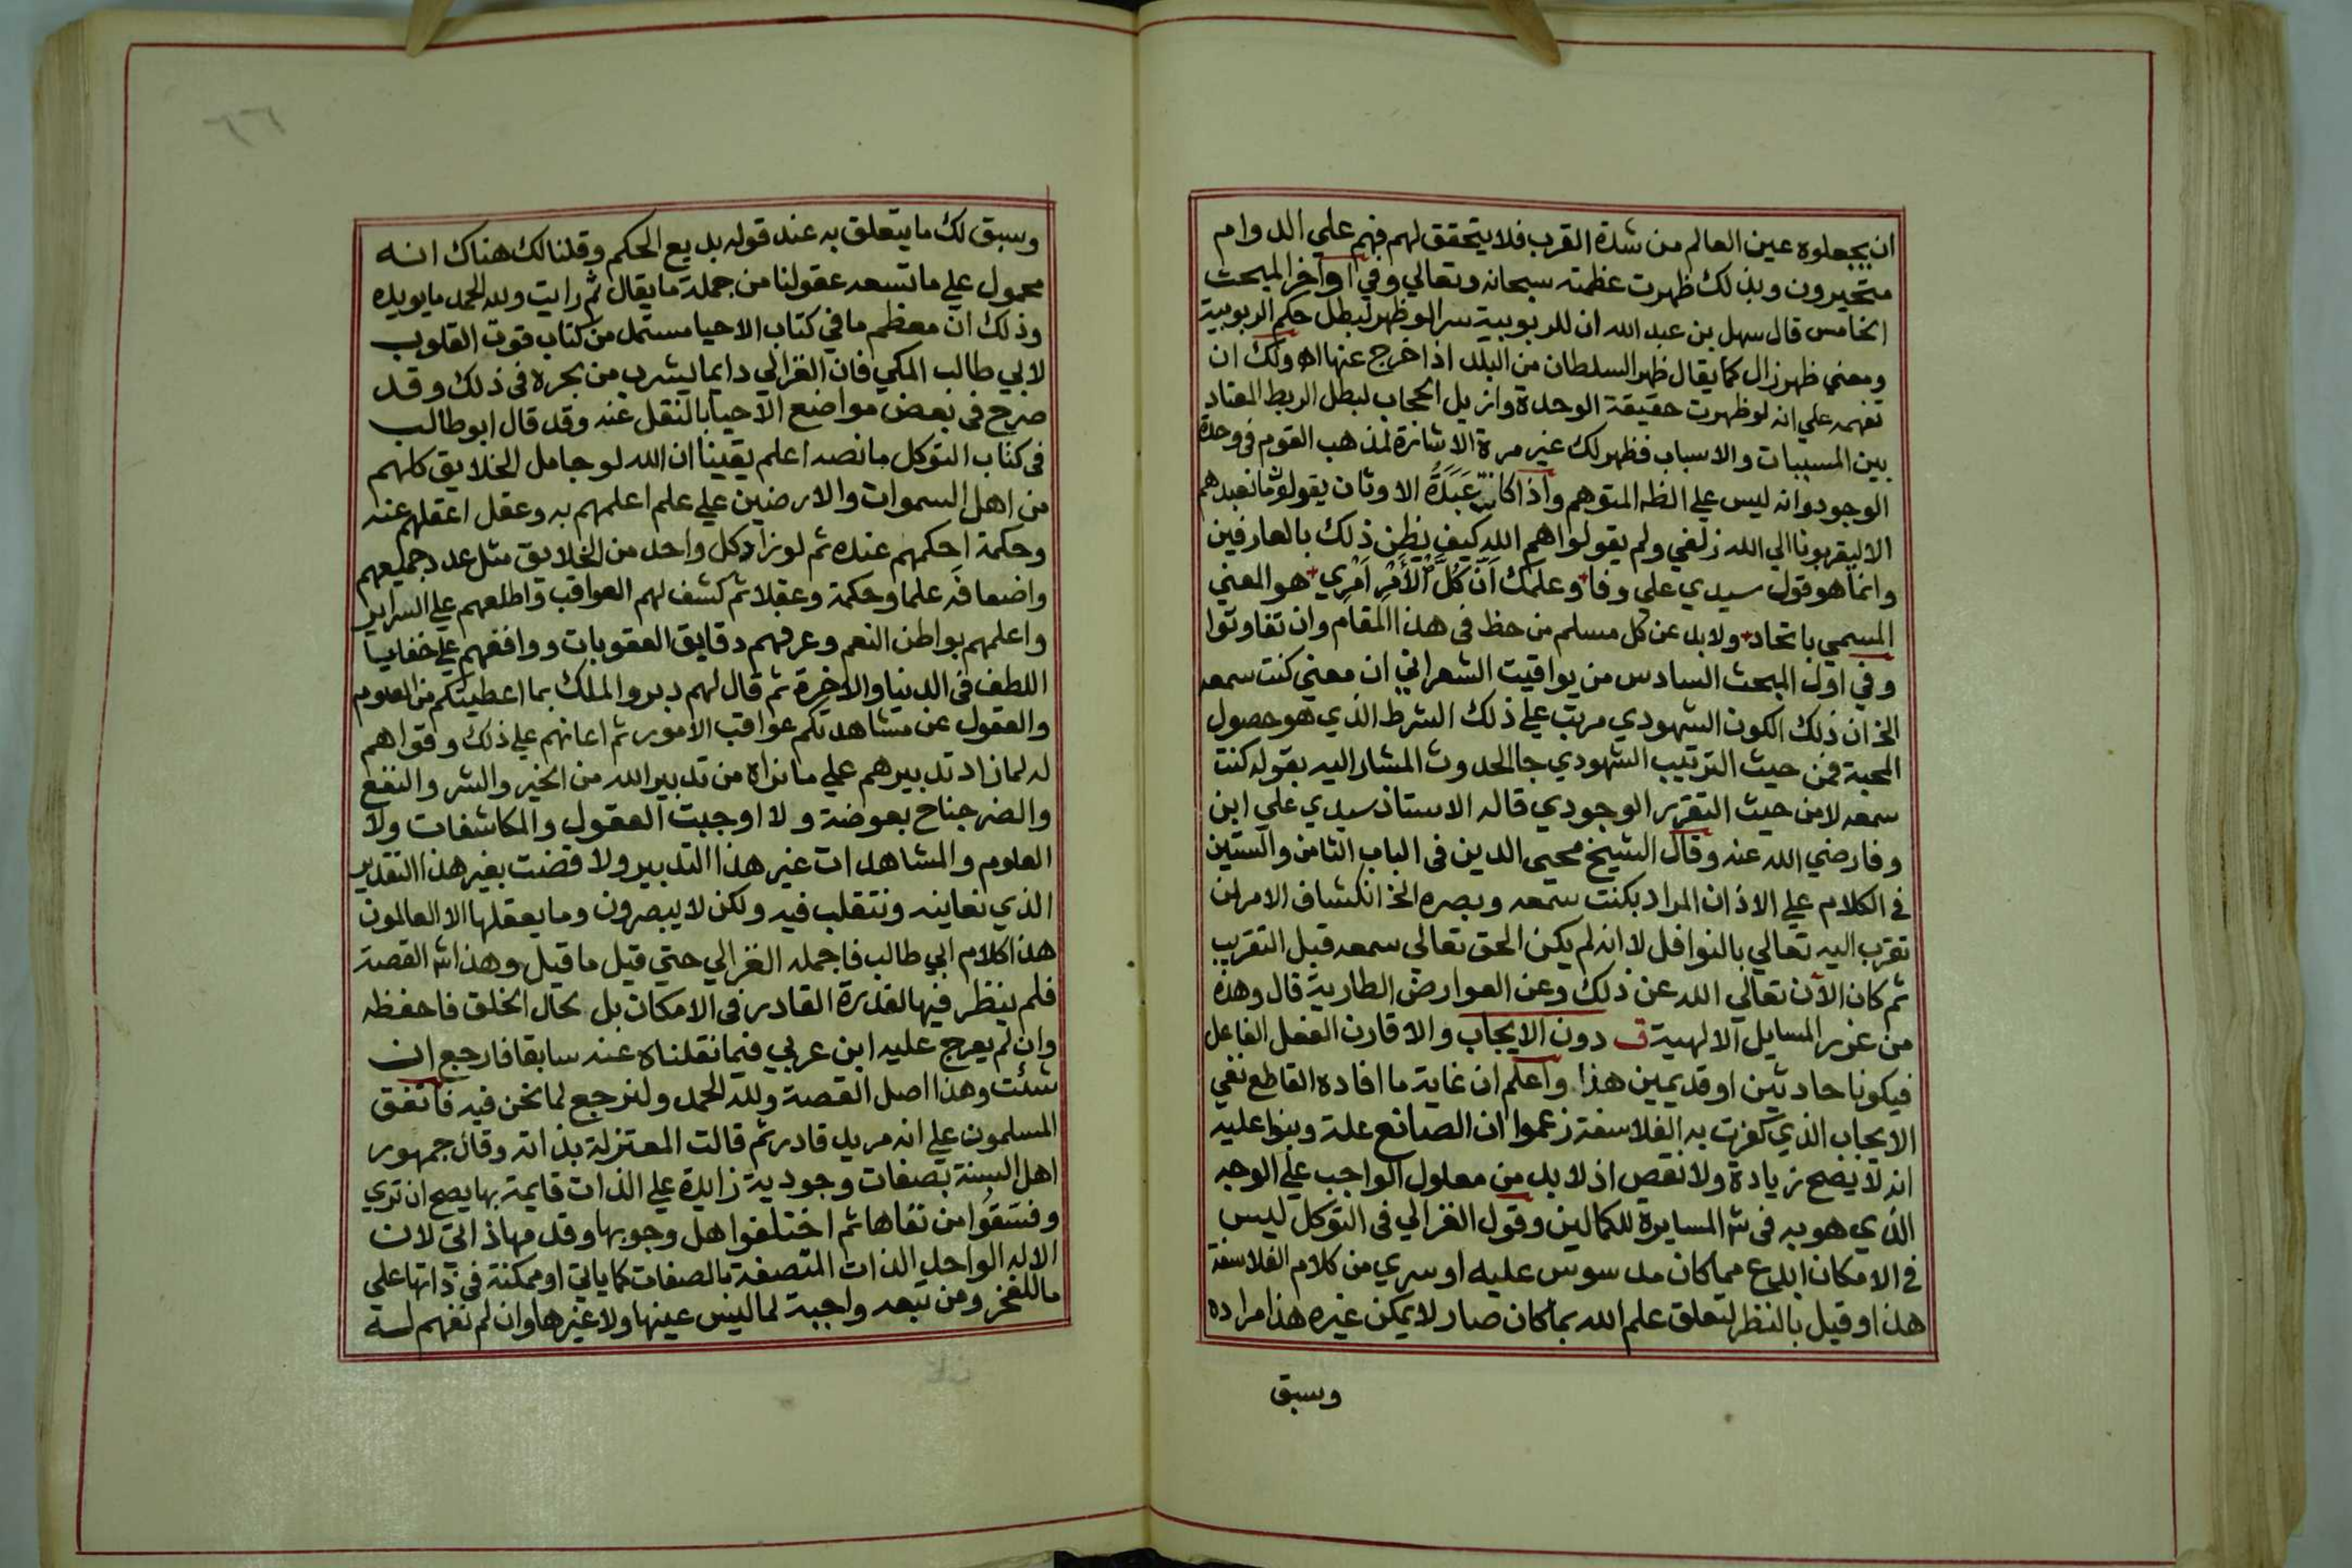 ان يجعلوه عين العالم من شدة القرب فلا يتحقق لهم فهم علي الدوام
متحيرون وبذلك ظهرت عظمته سبحانه وتعالي وفي اواخر المبحث
الخامس قال سهل بن عبد الله ان للربوبية سرا لو ظهر لبطل حكم الربوبية
ومعني ظهر زال كما يقال ظهر السلطان من البلد اذا خرج عنها اه ولك ان
تفهمه علي انه لو ظهرت حقيقة الوحدة وازيل الحجاب لبطل الربط المعتاد
بين المسببات والاسباب فظهر لك غير مرة الاشارة لمذهب القوم في وحدة
الوجود وانه ليس علي الظه المتوهم واذا كانت عَبَدَةُ الاوثان يقولو ما نعبدهم
الا ليقربونا الي الله زلفي ولم يقولوا هم الله كيف يظن ذلك بالعارفين
وانما هو قول سيدي علي وفا وعلمك أنّ كُلَّ الأَمْرِ أَمْرِي هو المعني
المسمي باتحاد ولا بد عن كل مسلم من حظ في هذا المقام وان تفاوتوا
وفي اول المبحث السادس من يواقيت الشعراني ان معني كنت سمعه
الخ ان ذلك الكون الشهودي مرتب علي ذلك الشرط الذي هو حصول
المحبة فمن حيث الترتيب الشهودي جا الحدوث المشار اليه بقوله كنت
سمعه لا من حيث التقرير الوجودي قاله الاستاذ سيدي علي ابن
وفا رضي الله عنه وقال الشيخ محيي الدين في الباب الثامن والستين
في الكلام علي الاذان المراد بكنت سمعه وبصره الخ انكشاف الامر لمن
تقرب اليه تعالي بالنوافل لا انه لم يكن الحق تعالي سمعه قبل التقريب
ثم كان الآن تعالي الله عن ذلك وعن العوارض الطارية قال وهذه
من غرر المسايل الالهية ف دون الايجاب والا قارن الفعل الفاعل
فيكونا حادثين او قديمين هذا واعلم ان غاية ما افاده القاطع نفي
الايجاب الذي كفرت به الفلاسفة زعموا ان الصانع علة وبنوا عليه
انه لا يصح زيادة ولا نقص اذ لا بد من معلول الواجب علي الوجه
الذي هو به في ش المسايرة للكمالين وقول الغزالي في التوكل ليس
في الامكان ابدع مما كان مدسوس عليه او سري من كلام الفلاسفة
هذا وقيل بالنظر لتعلق علم الله بما كان صار لا يمكن غيره هذا مراده
وسبق
وسبق لك ما يتعلق به عند قوله بديع الحكم وقلنا لك هناك انه
محمول علي ما تسعه عقولنا من جملة ما يقال ثم رايت ولله الحمد ما يويده
وذلك ان معظم ما في كتاب الاحيا مستمد من كتاب قوت القلوب
لابي طالب المكي فان الغزالي دايما يشرب من بحره في ذلك وقد
صرح في بعض مواضع الاحيا بالنقل عنه وقد قال ابو طالب
في كتاب التوكل ما نصه اعلم يقينا ان الله لو جامل الخلايق كلهم
من اهل السموات والارضين علي علم اعلمهم به وعقل اعقلهم عنه
وحكمة احكمهم عنده ثم لو زاد كل واحد من الخلايق مثل عدد جميعهم
واضعافه علما وحكمة وعقلا ثم كشف لهم العواقب واطلعهم علي السراير
واعلمهم بواطن النعم وعرفهم دقايق العقوبات ووافقهم علي خفايا
اللطف في الدنيا والاخرة ثم قال لهم دبروا الملك بما اعطيتكم من العلوم
والعقول عن مشاهدتكم عواقب الامور ثم اعانهم علي ذلك وقواهم
له لما زاد تدبيرهم علي ما نراه من تدبير الله من الخير والشر والنفع
والضر جناح بعوضة ولا اوجبت العقول والمكاشفات ولا
العلوم والمشاهدات غير هذا التدبير ولا قضت بغير هذا التقدير
الذي نعاينه ونتقلب فيه ولكن لا يبصرون وما يعقلها الا العالمون
هذا كلام ابي طالب فاجمله الغزالي حتي قيل ما قيل وهذا القصة
فلم ينظر فيها لقدرة القادر في الامكان بل بحال الخلق فاحفظه
وان لم يعرج عليه ابن عربي فيما نقلناه عنه سابقا فارجع ان
شئت وهذا اصل القصة ولله الحمد ولنرجع لما نحن فيه فاتفق
المسلمون علي انه مريد قادر ثم قالت المعتزلة بذاته وقال جمهور
اهل السنة بصفات وجودية زايدة علي الذات قايمة بها يصح ان تري
وفسَّقوا من نفاها ثم اختلفوا هل وجوبها وقدمها ذاتي لان
الاله الواحد الذات المتصفة بالصفات كما ياتي او ممكنة في ذاتها علي
ما للفخر ومن تبعه واجبة لما ليس عينها ولا غيرها وان لم نفهم لسه